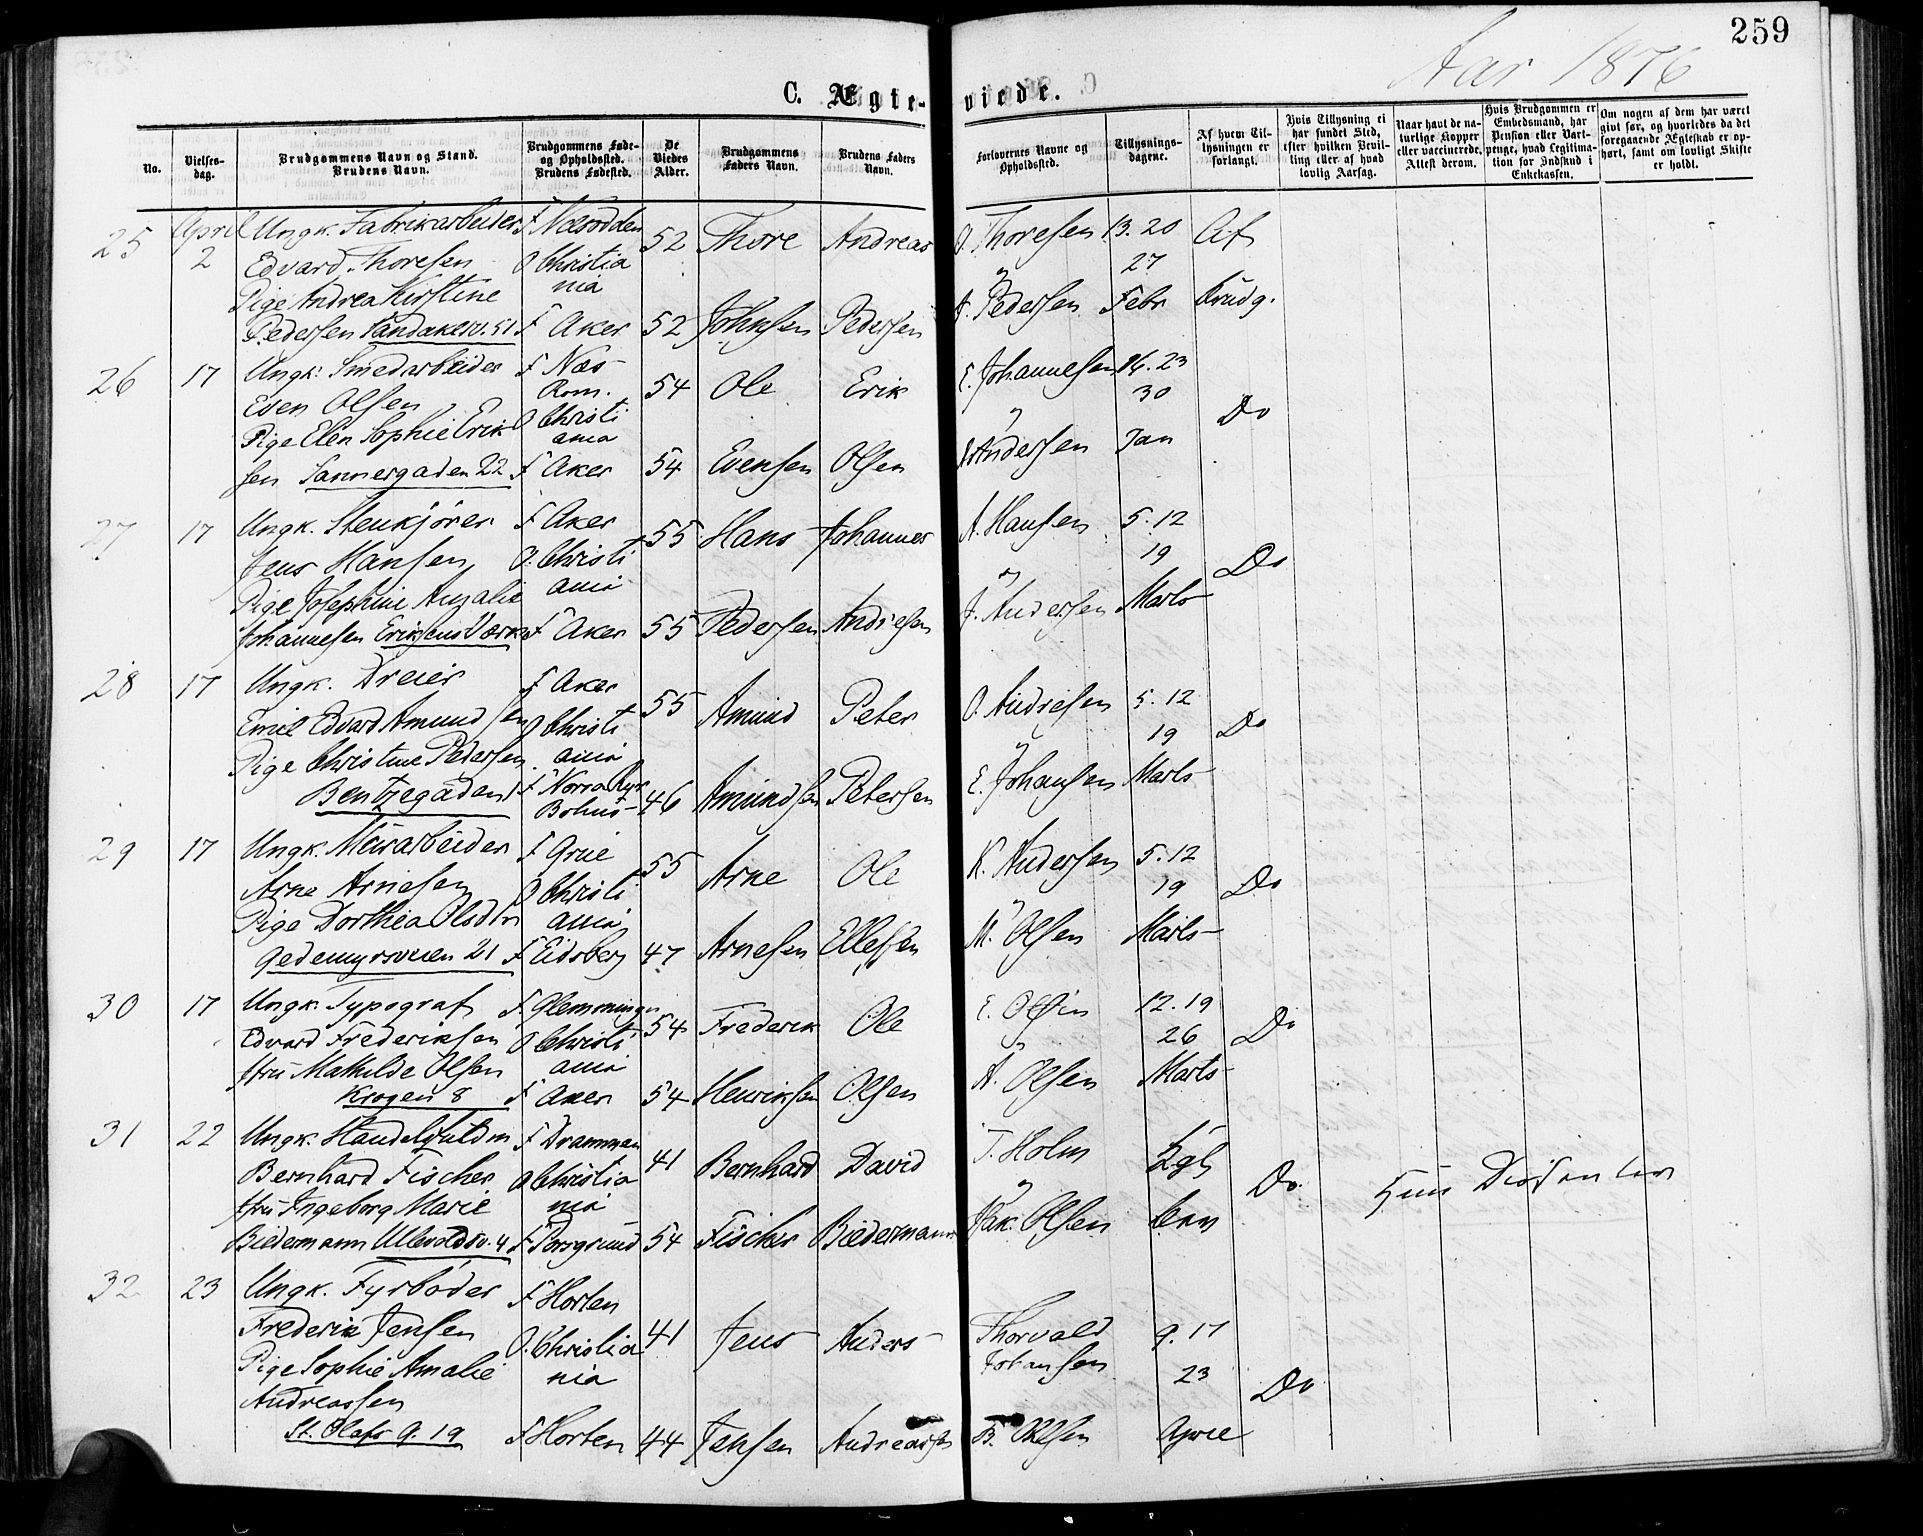 259
Aar 1876
C. Ægte-viede.
No.
Vielses-dag.
Brudgommens Navn og Stand.
Brudens Navn.
Brudgommens Føde- og Opholdssted.
Brudens Fødested.
De Viedes Alder.
Brudgommens Faders Navn.
Brudens Faders Navn.
Forlovernes Navne og Opholdssted.
Tillysnings-dagene.
Af hvem Til-lysningen er forlangt.
Hvis Tillysning ei har fundet Sted, efter hvilken Bevil-ling eller af hvad lovlig Aarsag.
Naar havt de na-turlige Kopper eller vaccinerede. Attest derom.
Hvis Brudgommen er Embedsmand, har Pension eller Vart-penge, hvad Legitima-tion for Indskud i Enkekassen.
Om nogen af dem har været givt før, og hvorledes da det foregaaende Ægteskab er op-hørt, samt om lovligt Skifte er holdt.
25 April Ungk. Fabrikarbeider F Næsodden 52 Thore Andreas O. Thoresen 13. 20 Af
2 Edvard Thoresen O Christia 27
Pige Andrea Kirstine nia J. Pedersen Febr Brudg.
Pedersen Sandakerv. 51 F Aker 52 Johnsen Pedersen
26 17 Ungk. Smedarbeider F Næs 54 Ole Erik E. Johannesen 16. 23
Even Olsen Rom. 30 Do
Pige Elen Sophie Erik O Christi
ania Andersen Jan
sen Sannergaden 22 F Aker 54 Evensen Olsen
27 17 Ungk. Stenkjører F Aker 55 Hans Johannes A. Hansen 5. 12
Jens Hansen O. Christi 19 Do
Pige Josephine Amalie ania J. Andersen Marts
Johannesen Eriksens Værk F Aker 55 Pedersen Andresen
28 17 Ungk. Dreier F Aker 55 Amund Peter O. Andresen 5. 12
Emil Edvard Amundsen O Christi 19 Do
Pige Christine Petersen ania E. Johansen Marts
Bentzegaden F Norra Ryr 46 Amundsen Petersen
Bohus
29 17 Ungk. Murarbeider F Grue 55 Arne Ole K. Andersen 5. 12
Arne Arnesen O Christi 19 Do
Pige Dorthea Olsdtr ania M. Olsen Marts
Gedemyrsveien 21 F Eidsberg 47 Arnesen Ellefsen
30 17 Ungk. Typograf F. Glemminge 54 Frederik Ole E. Olsen 12. 19
Edvard Frederiksen O Christi 26 Do
Jfru Mathilde Olsen ania A. Olsen Marts
Krogen 8 F Aker 54 Henriksen Olsen
31 22 Ungk. Handelsfuldm F Drammen 41 Bernhard David T. Holm Kgl
Bernhard Fischer O Christia Do. Hun Dissenter
Jfru Ingeborg Marie nia Jak. Olsen
Biedermann Ullevoldsv. 4 F Porsgrund 54 Fischer Biedermann
32 23 Ungk. Fyrbøder F Horten
Frederik Jensen O. Christia 41 Jens Anders Thorvald 9. 17
Pige Sophie Amalie nia Johansen 23 Do
Andreassen
St. Olafs G. 19 F Horten 44 Jensen Andreassen B. Olsen April